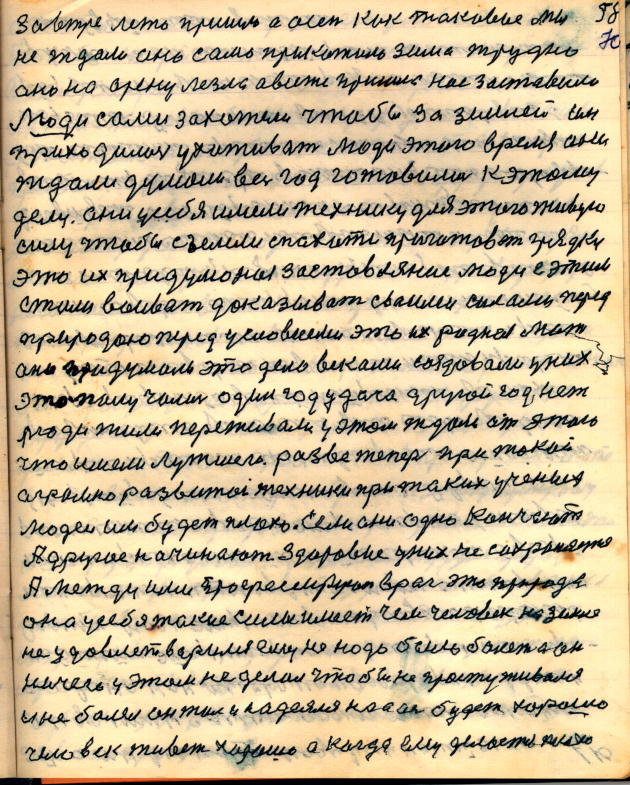 Завтре лето пришло а осен как таковые мы 58
не ждали оно само прикотило зима трудно
оно на арену лезла авсеже пришла нас заставила
Люди сами захотели чтобы за землей он
приходилось ухаживат Люди этого время они
ждали думали вес год готовилис к этому
делу. они усебя имели технику для этого живую
силу чтобы сземли спахати приготовит грядку
это их придуманоя заставляние люди с этим
стали воиват доказыват сваими силами перед
природаю перед условиеми это их родная мат
они придумали это дело веками создовали у них
это получалос один год удача другой год нет
люди жили переживали у этом ждали от этого
что имели лутшего. разве тепер при такой
агромно развитой техники при таких ученых
людей им будет плохо. Если они одно кончают
А другое начинают. Здоровие у них не сохраняется
А между ими Прогрессируеш враг это природа
она усебя такие силы имеет чем человек на земле
неудовлетварился ему не нодо было болет а он
ничего у этом неделал чтобы не простуживался
и не болел он жил и надеялся на ... будет хорошо
человек живет хорошо а когда ему делается плохо